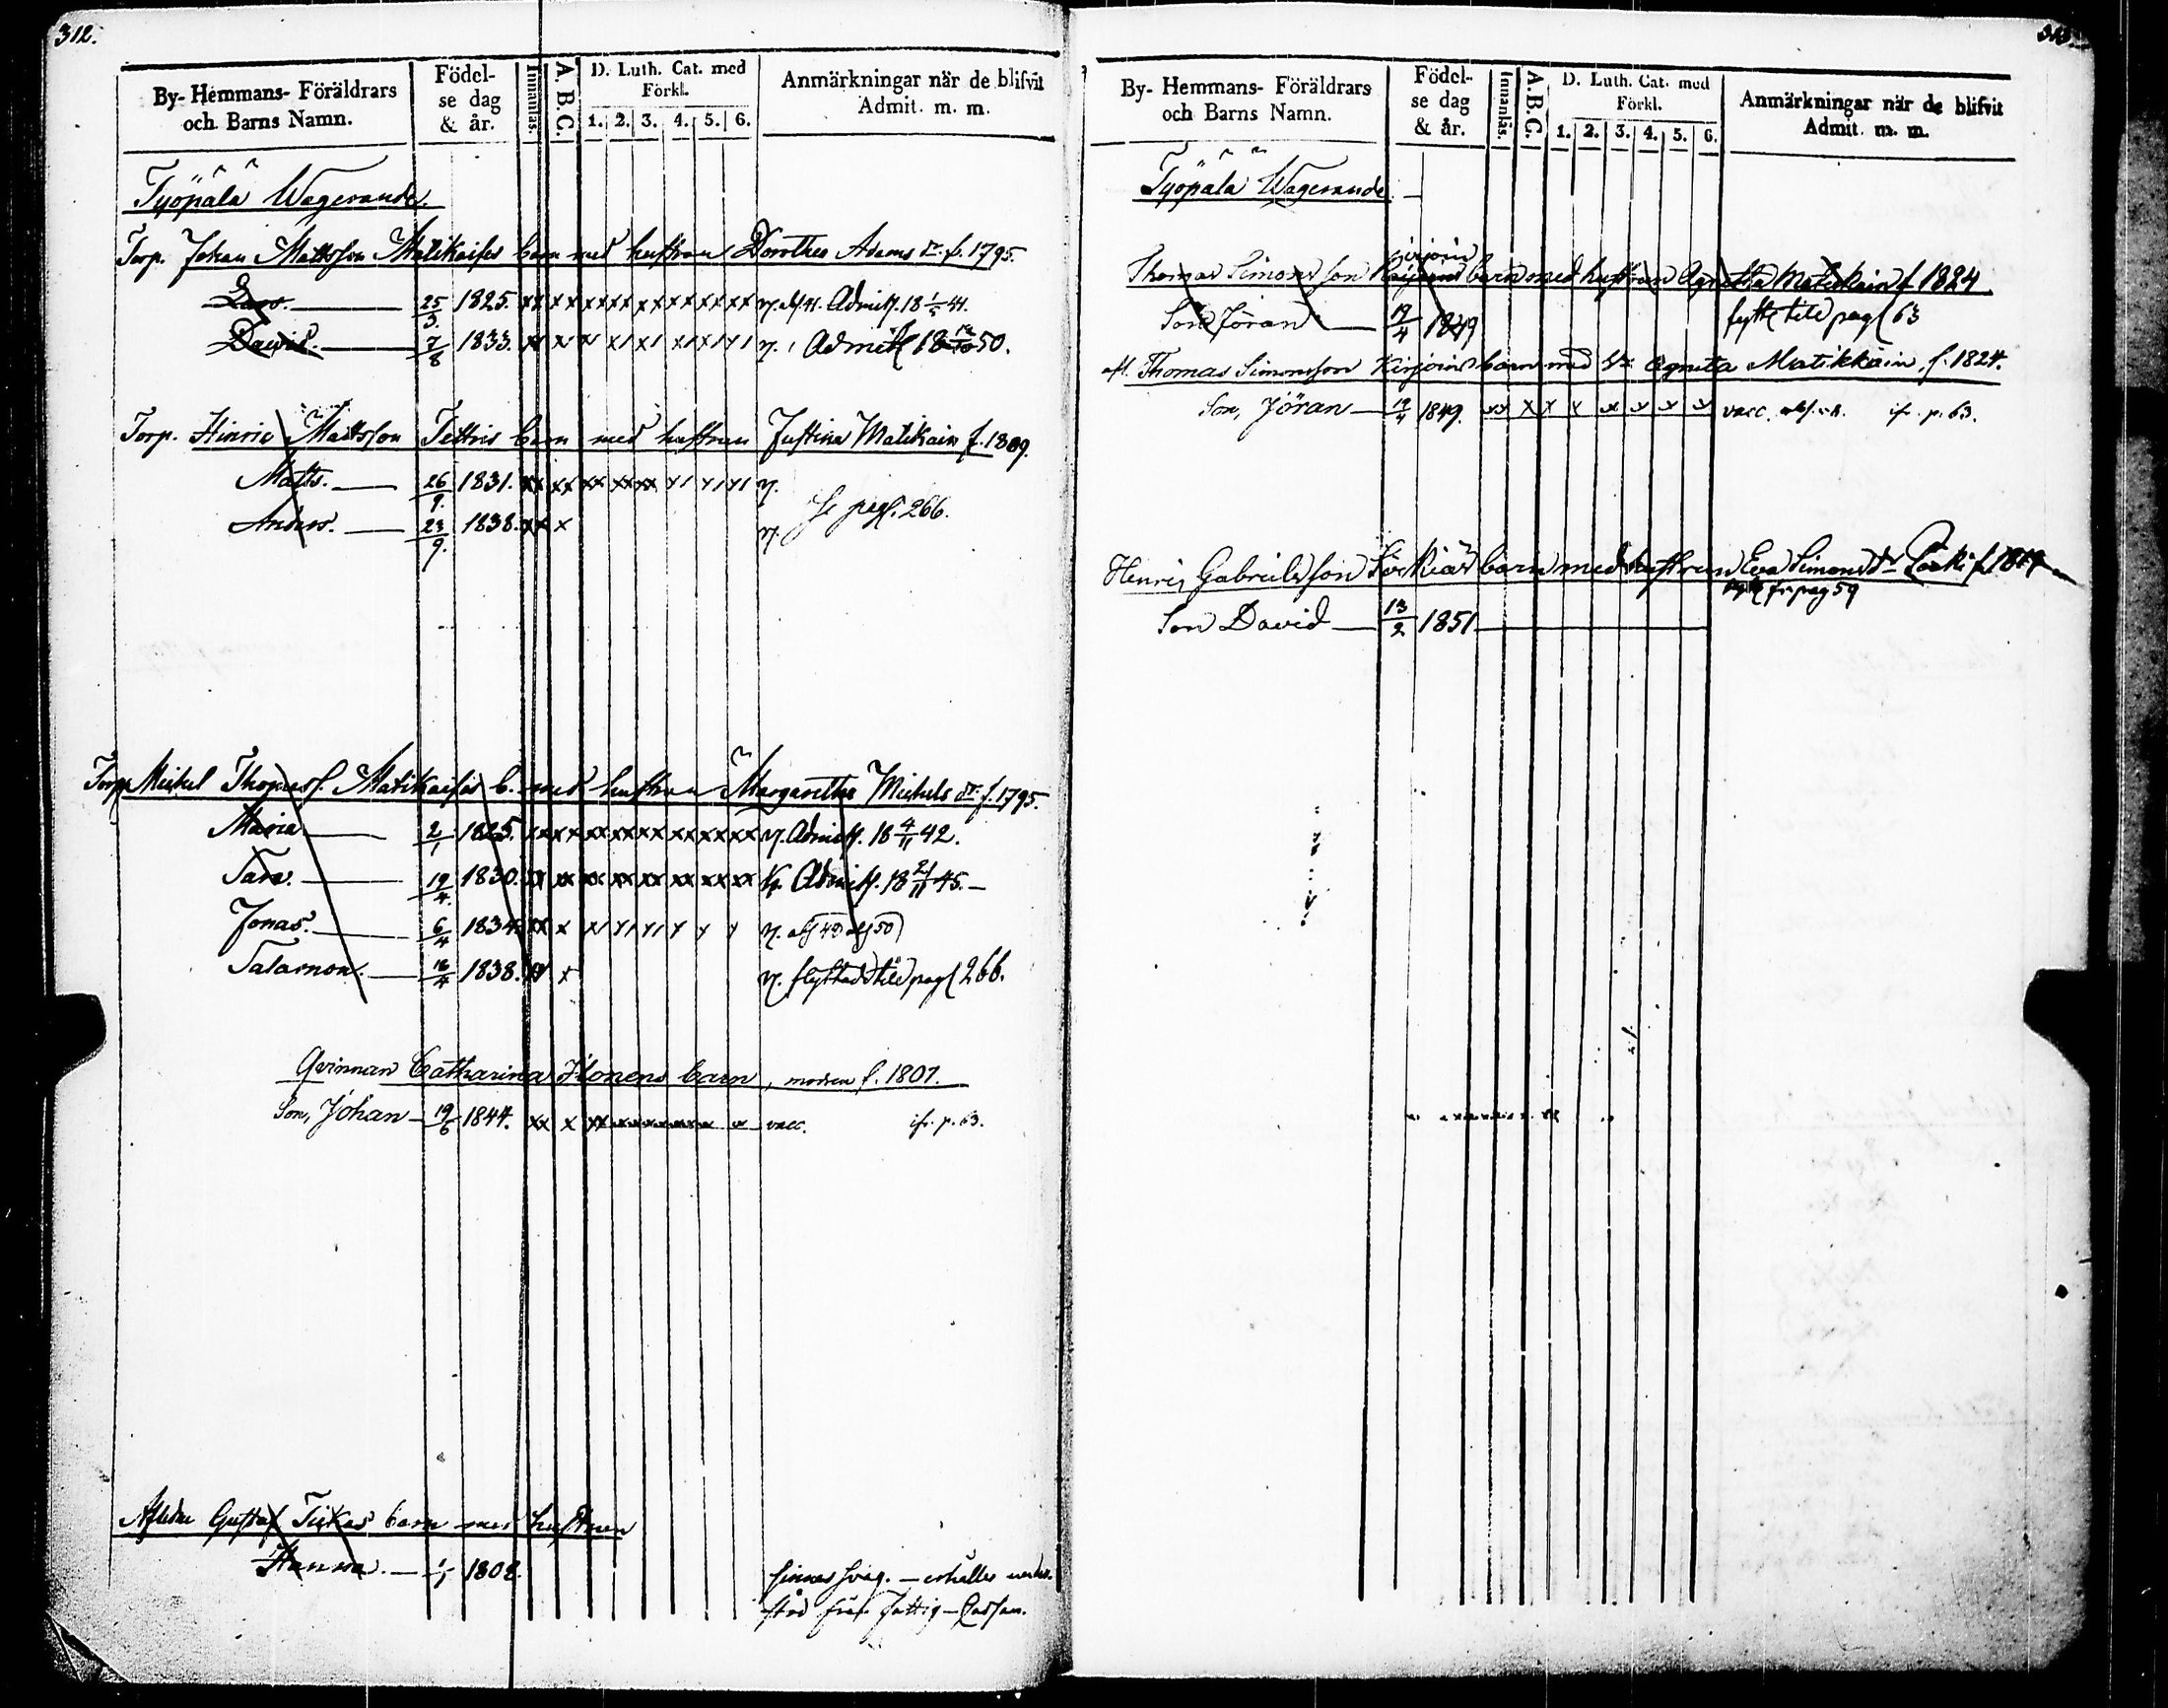 312.
By- Hemmans- Föräldrars och Barns Namn.
Födel- se dag & år.
Innanläs.
A.B.C.
D. Luth. Cat. med Förkl.
1. 2. 3. 4. 5. 6.
Anmärkningar när de blifvit Admit. m. m.
Työpälä Wagerande.
Torp. Johan Mattsson Matikaises barn med hustrun Dorothea Adams dr. f. 1795.
Lars. 25/3. 1825. xx xx xx xx xx xx xx xx Admitt. 18 1/5 41.
David. 7/8 1833. Admitt 18 50.
Torp. Hinric Mattsson Tettris barn med hustrun Justina Matikain f. 1809.
Matts. 26/9. 1831. v.
Se pag. 266.
Anders. 23/9. 1838. xx x v.
Torp. Mickel Thomass. Matikaises b. med hustrun Margaretha Mickels dr. f. 1795.
Maria 2/1 1825. xx xx xx xx xx xx xx xx v. Admitt. 18 4/11 42.
Sara. 19/4. 1830. xx xx xx xx xx xx xx xx Admitt. 18 21/11 45.
Jonas. 6/4 1834. xx x v.
Salamon. 16/4 1838. x v. flyttad till pag 266.
Qvinnan Catharina Ilonens barn, modren f. 1807.
Son, Johan 19/6 1844. xx x xx vacc. ifr. p. 63.
Afledne Gustaf Tiikas barn med hustrun
Hanna. 1/1 1802.
sinnes svag. – erhåller under-
stöd från Fattig-Cassan.
313.
By- Hemmans- Föräldrars och Barns Namn.
Födel- se dag & år.
Innanläs.
A.B.C.
D. Luth. Cat. med Förkl.
1. 2. 3. 4. 5. 6.
Anmärkningar när de blifvit Admit. m. m.
Työpälä Wagerande.
Kirjoin
Thomas Simonsson barn med hustrun Agnetha Matikain f 1824
Son Jöran 19/4 1849 fytt till pag 63
afl. Thomas Simonsson Kirjoins barn med h. Agneta Matikkain, f. 1824.
Son, Jöran 19/4 1849. xx x x x x x x x vacc. ifr. p. 63.
Henric Gabrielsson barn med hustrun Eva Simonsdr f 1819
fr. pag 59
Son David 13/2 1851